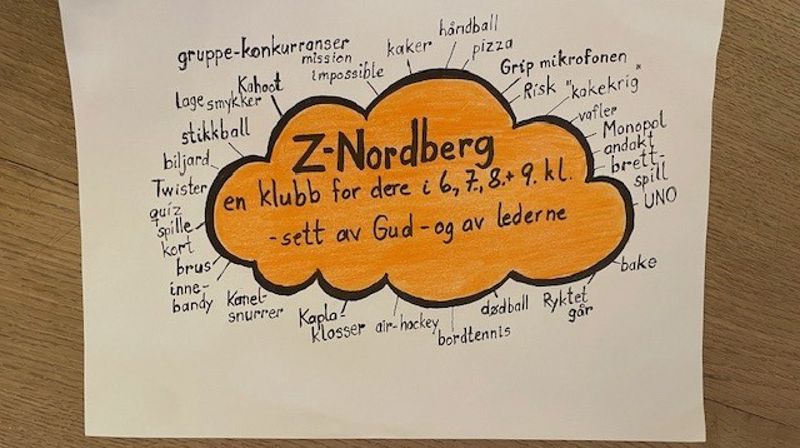 gruppe-konkurranser
mission
impossible
kaker
håndball
pizza
Grip mikrofonen
Risk
"kakekrig"
vafler
Monopol
andakt
brett-
spill
UNO
bake
Ryktet
går
dødball
bordtennis
air-hockey
Kapla-
klosser
Kanel-
snurrer
inne-
bandy
brus
spille
kort
quiz
Twister
biljard
stikkball
Lage smykker
Kahoot
Z-Nordberg
en klubb for dere i 6., 7., 8. + 9. kl.
-sett av Gud - og av lederne